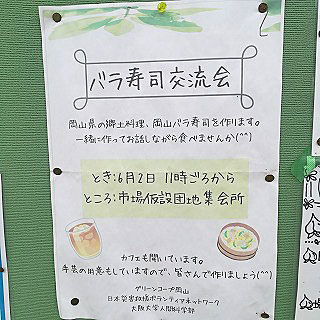 バラ寿司交流会
岡山県の郷土料理、岡山バラ寿司を作ります。
一緒に作ってお話しながら食べませんか(^^)
とき:6月2日 11時ごろから
ところ:市場仮設団地集会所
カフェも開いています。
手芸の用意もしていますので、皆さんで作りましょう(^^)
グリーンコープ岡山
日本災害救援ボランティアネットワーク
大阪大学人間科学部